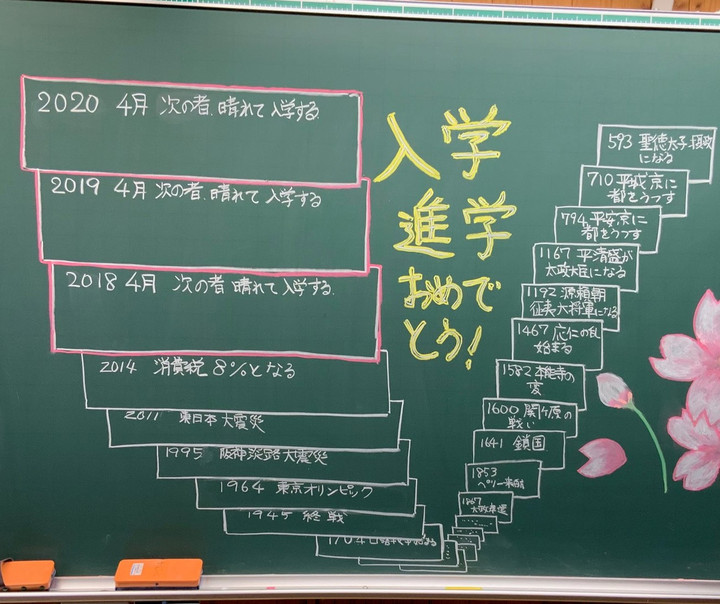 2020 4月 次の者、晴れて入学する
2019 4月 次の者、晴れて入学する
2018 4月 次の者 晴れて入学する
2014 消費税8%となる
2011 東日本大震災
1995 阪神淡路大震災
1964 東京オリンピック
1945 終戦
入学
進学
おめで
とう!
593 聖徳太子 摂政
になる
710 平城京に
都をうつす
794 平安京に
都をうつす
1167 平清盛が
太政大臣になる
1192 源頼朝
征夷大将軍になる
1467 応仁の乱
始まる
1582 本能寺の
変
1600 関ヶ原の
戦い
1641 鎖国
1853
ペリー来航
1867
大政奉還